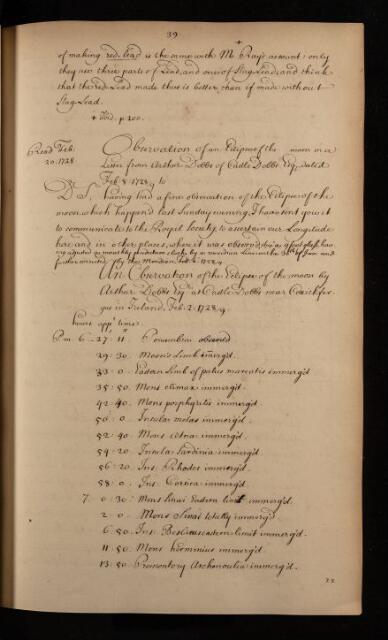 39
of making red lead is the same with Mr Ray's account: only
they use three parts of Lead, and one of Slag Lead, and think
that the red Lead made thus is better than if made without
Slag Lead.
+ Vid. p. 200.
Read Feb. 20. 1728
Observation of an Eclipse of the moon in a
Letter from Arthur Dobbs of Castle Dobbs Esqr dated
Feb 8 1728/9 to
Dr S, having had a fine observation of the Eclipse of the
moon which happen'd last Sunday evening, I have sent you it
to communicate to the Royal Society to ascertain our Longitude
here and in other places, where it was observ'd,
An Observation of the Eclipse of the moon by
Arthur Dobbs Esqr at Castle Dobbs near Carrickfer-
gus in Ireland, Feb. 2. 1728/9.
hours app't time.
P.m. 6 - 27. 11 Penumbra observ'd
29. 30. Moon's Limb emerg'd.
33. 0. Eastern Limb of palus mareotis immerg'd
35. 50 Mons climax immerg'd.
42. 40. Mons porphyritis immerg'd.
50. 0. Insulae melos immerg'd.
52. 40 Mons etna immerg'd.
54. 20 Insula Sardinia immerg'd.
56. 20 Ins. Rhodos immerg'd.
58. 0. Ins. Corsica immerg'd.
7. 0. 30. Mons Sinai Eastern limit immerg'd.
2. 0. Mons Sinai totally immerg'd.
6. 50 Ins. Besbicus eastern limit immerg'd.
11. 50 Mons herminius immerg'd.
13. 50 Promontory immerg'd.